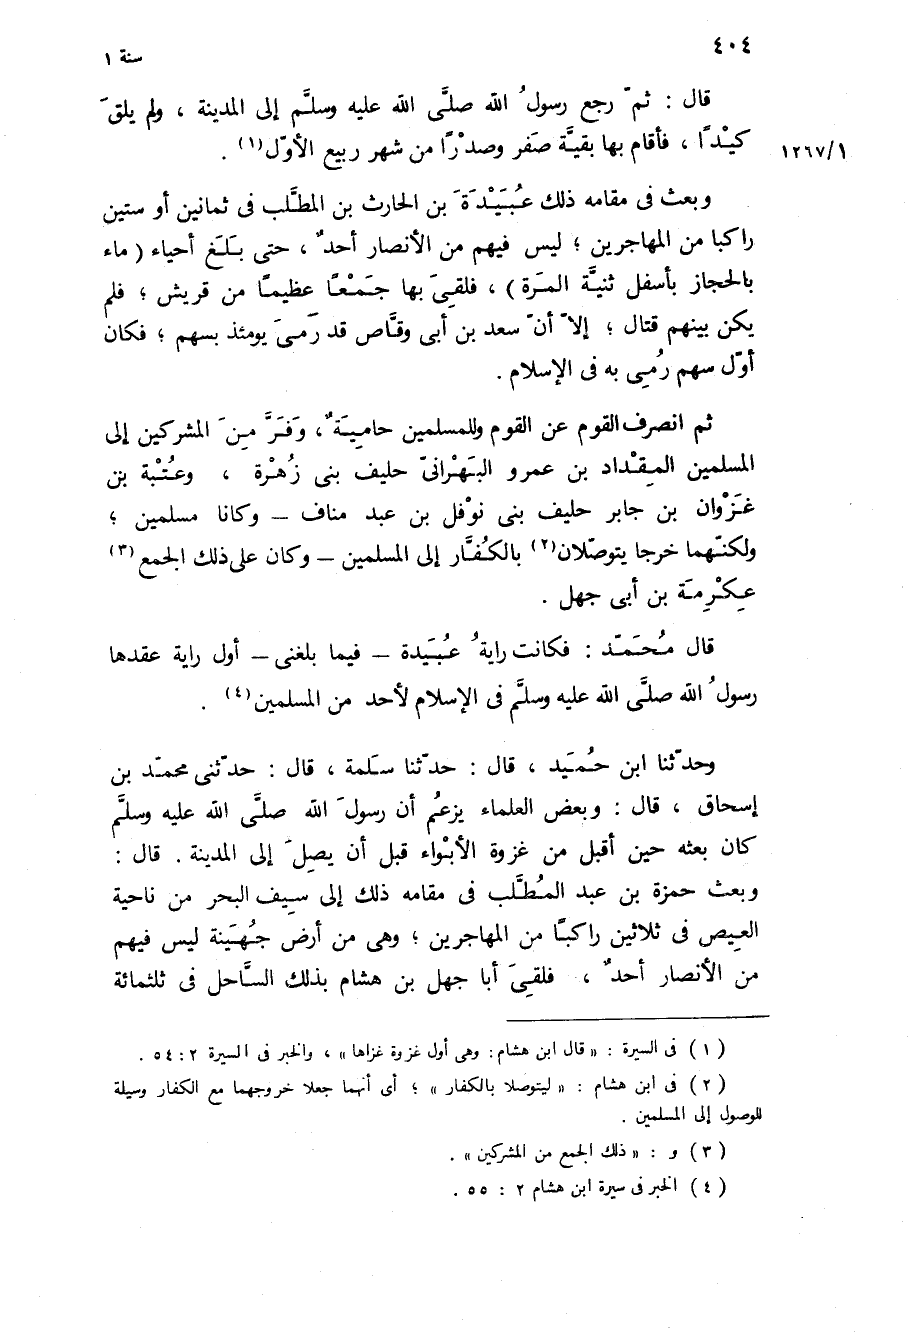 ٤٠٤
سنة ١
قال : ثمّ رجع رسولُ الله صلَّى الله عليه وسلَّم إلى المدينة ، ولم يلقَ
١٢٦٧/١
كيْدًا ، فأقام بها بقيَّة صَفر وصدْرًا من شهر ربيع الأوّل(١) .
وبعث فى مقامه ذلك عُبَيْدَةَ بن الحارث بن المطَّلب فى ثمانين أو ستين
راكبا من المهاجرين ؛ ليس فيهم من الأنصار أحدٌ ، حتى بَلَغ أحياء ( ماء
بالحجاز بأسفل ثنيَّة المَرة ) ، فلقىَ بها جَمْعًا عظيمًا من قريش ؛ فلم
يكن بينهم قتال ؛ إلاّ أنّ سعد بن أبى وقَّاص قد رَمى يومئذ بسهم ؛ فكان
أوّل سهم رُمِى به فى الإسلام .
ثم انصرف القوم عن القوم وللمسلمين حامِيَةٌ ، وَفَرَّ مِنَ المشركين إلى
المسلمين المِقْداد بن عمرو البَهْرانىّ حليف بنى زُهْرة ، وعُتْبة بن
غَزْوان بن جابر حليف بنى نوْفل بن عبد مناف – وكانا مسلمين ؛
ولكنّهما خرجا يتوصّلان(٢) بالكُفَّار إلى المسلمين – وكان على ذلك الجمع(٣)
عِكْرِمَة بن أبى جهل .
قال مُحَمّد : فكانت رايةُ عُبَيدة – فيما بلغنى – أول راية عقدها
رسولُ الله صلَّى الله عليه وسلَّم فى الإسلام لأحد من المسلمين(٤) .
وحدّثنا ابن حُمَيد ، قال : حدّثنا سَلمة ، قال : حدّثنى محمّد بن
إسحاق ، قال : وبعض العلماء يزعُم أن رسولَ الله صلَّى الله عليه وسلَّم
كان بعثه حين أقبل من غزوة الأبْواء قبل أن يصلَ إلى المدينة . قال :
وبعث حمزة بن عبد المُطَّلب فى مقامه ذلك إلى سِيف البحر من ناحية
العِيص فى ثلاثين راكبًا من المهاجرين ؛ وهى من أرض جُهَينة ليس فيهم
من الأنصار أحدٌ ، فلقىَ أبا جهل بن هشام بذلك السَّاحل فى ثلثمائة
(١) فى السيرة : « قال ابن هشام : وهى أول غزوة غزاها » ، والخبر فى السيرة ٢ : ٥٤ .
(٢) فى ابن هشام : « ليتوصلا بالكفار » ؛ أى أنهما جعلا خروجهما مع الكفار وسيلة
للوصول إلى المسلمين .
(٣) و : « ذلك الجمع من المشركين » .
(٤) الخبر فى سيرة ابن هشام ٢ : ٥٥ .